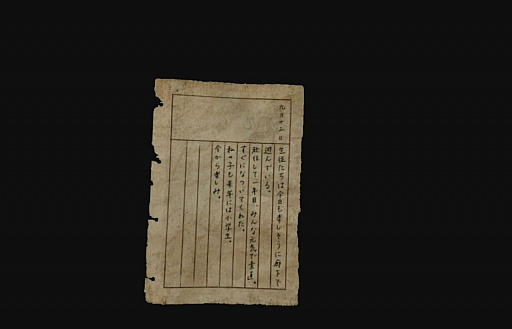 九月十二日
生徒たちは今日も楽しそうに廊下で
遊んでいる。
赴任して一年目、みんな元気で素直。
すぐになついてくれた。
私の子も来年には小学生。
今から楽しみ。